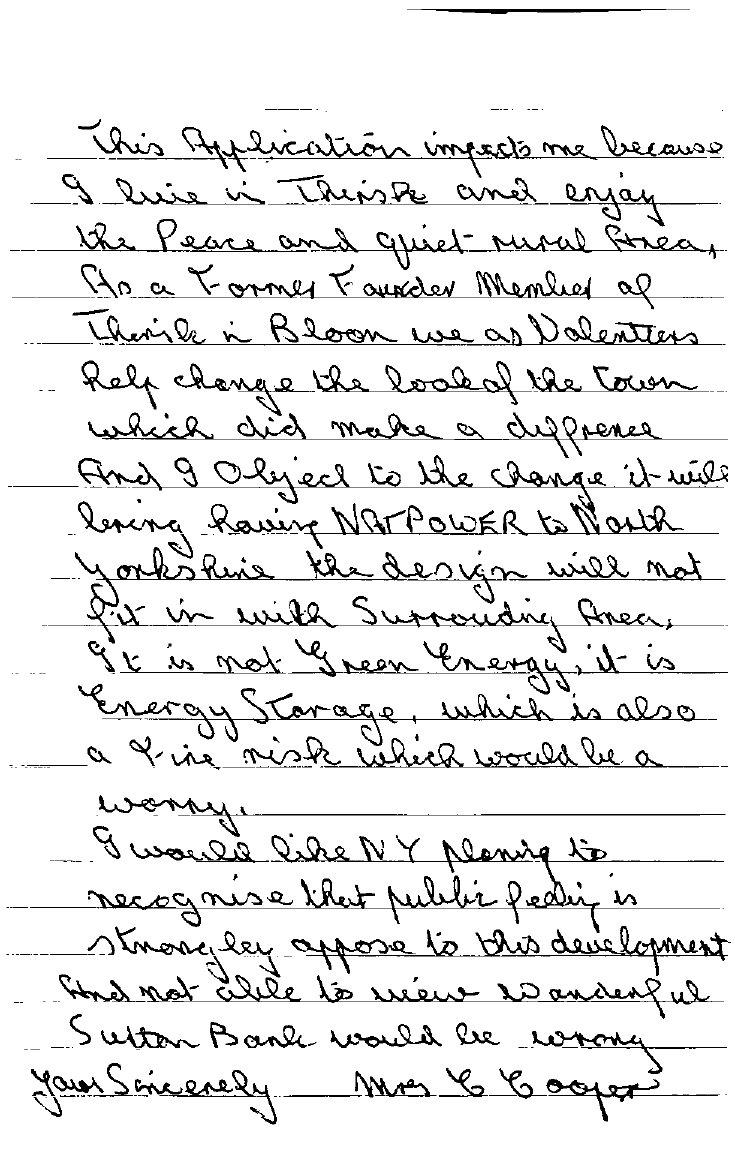 This Application impacts me because
I live in Thirsk and enjoy
the Peace and quiet rural Area,
As a Former Founder Member of
Thirsk in Bloom we as Volentters
help change the look of the Town
which did make a diffrence
And I Object to the change it will
bring having NATPOWER to North
Yorkshire the design will not
fit in with Surrouding Area,
It is not Green Energy, it is
Energy Storage, which is also
a Fire risk which would be a
worry.
I would like NY planing to
recognise that public feeling is
strongley appose to this development
And not able to view Wanderful
Sutton Bank would be wrong
Yours Sincerely Mrs C Cooper